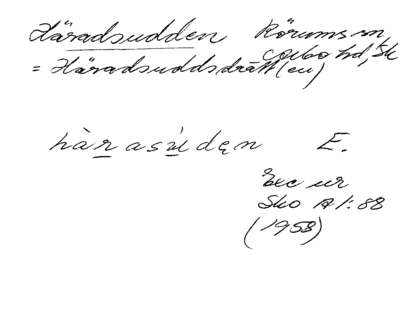 Häradsudden Rörums sn,
Albo hd, Sk
= Häradsuddsdrätt (en)
hàrasúdęn E.
Exc ur
Sko A1:88
(1953)